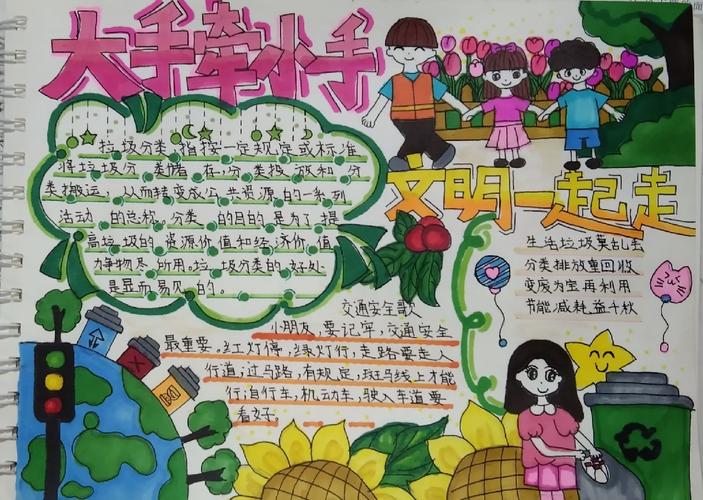 大手牵小手
垃圾分类,指按一定规定或标准
将垃圾分类储存,分类投放和分
类搬运,从而转变成公共资源的一系列
活动的总称。分类的目的是为了提
高垃圾的资源价值和经济价值,
力争物尽所用。垃圾分类的好处
是显而易见的。
文明一起走
生活垃圾莫乱丢
分类排放重回收
变废为宝再利用
节能减耗益千秋
交通安全歌
小朋友,要记牢,交通安全
最重要,红灯停,绿灯行,走路要走人
行道,过马路,有规定,斑马线上才能
行,自行车,机动车,驶入车道要
看好。